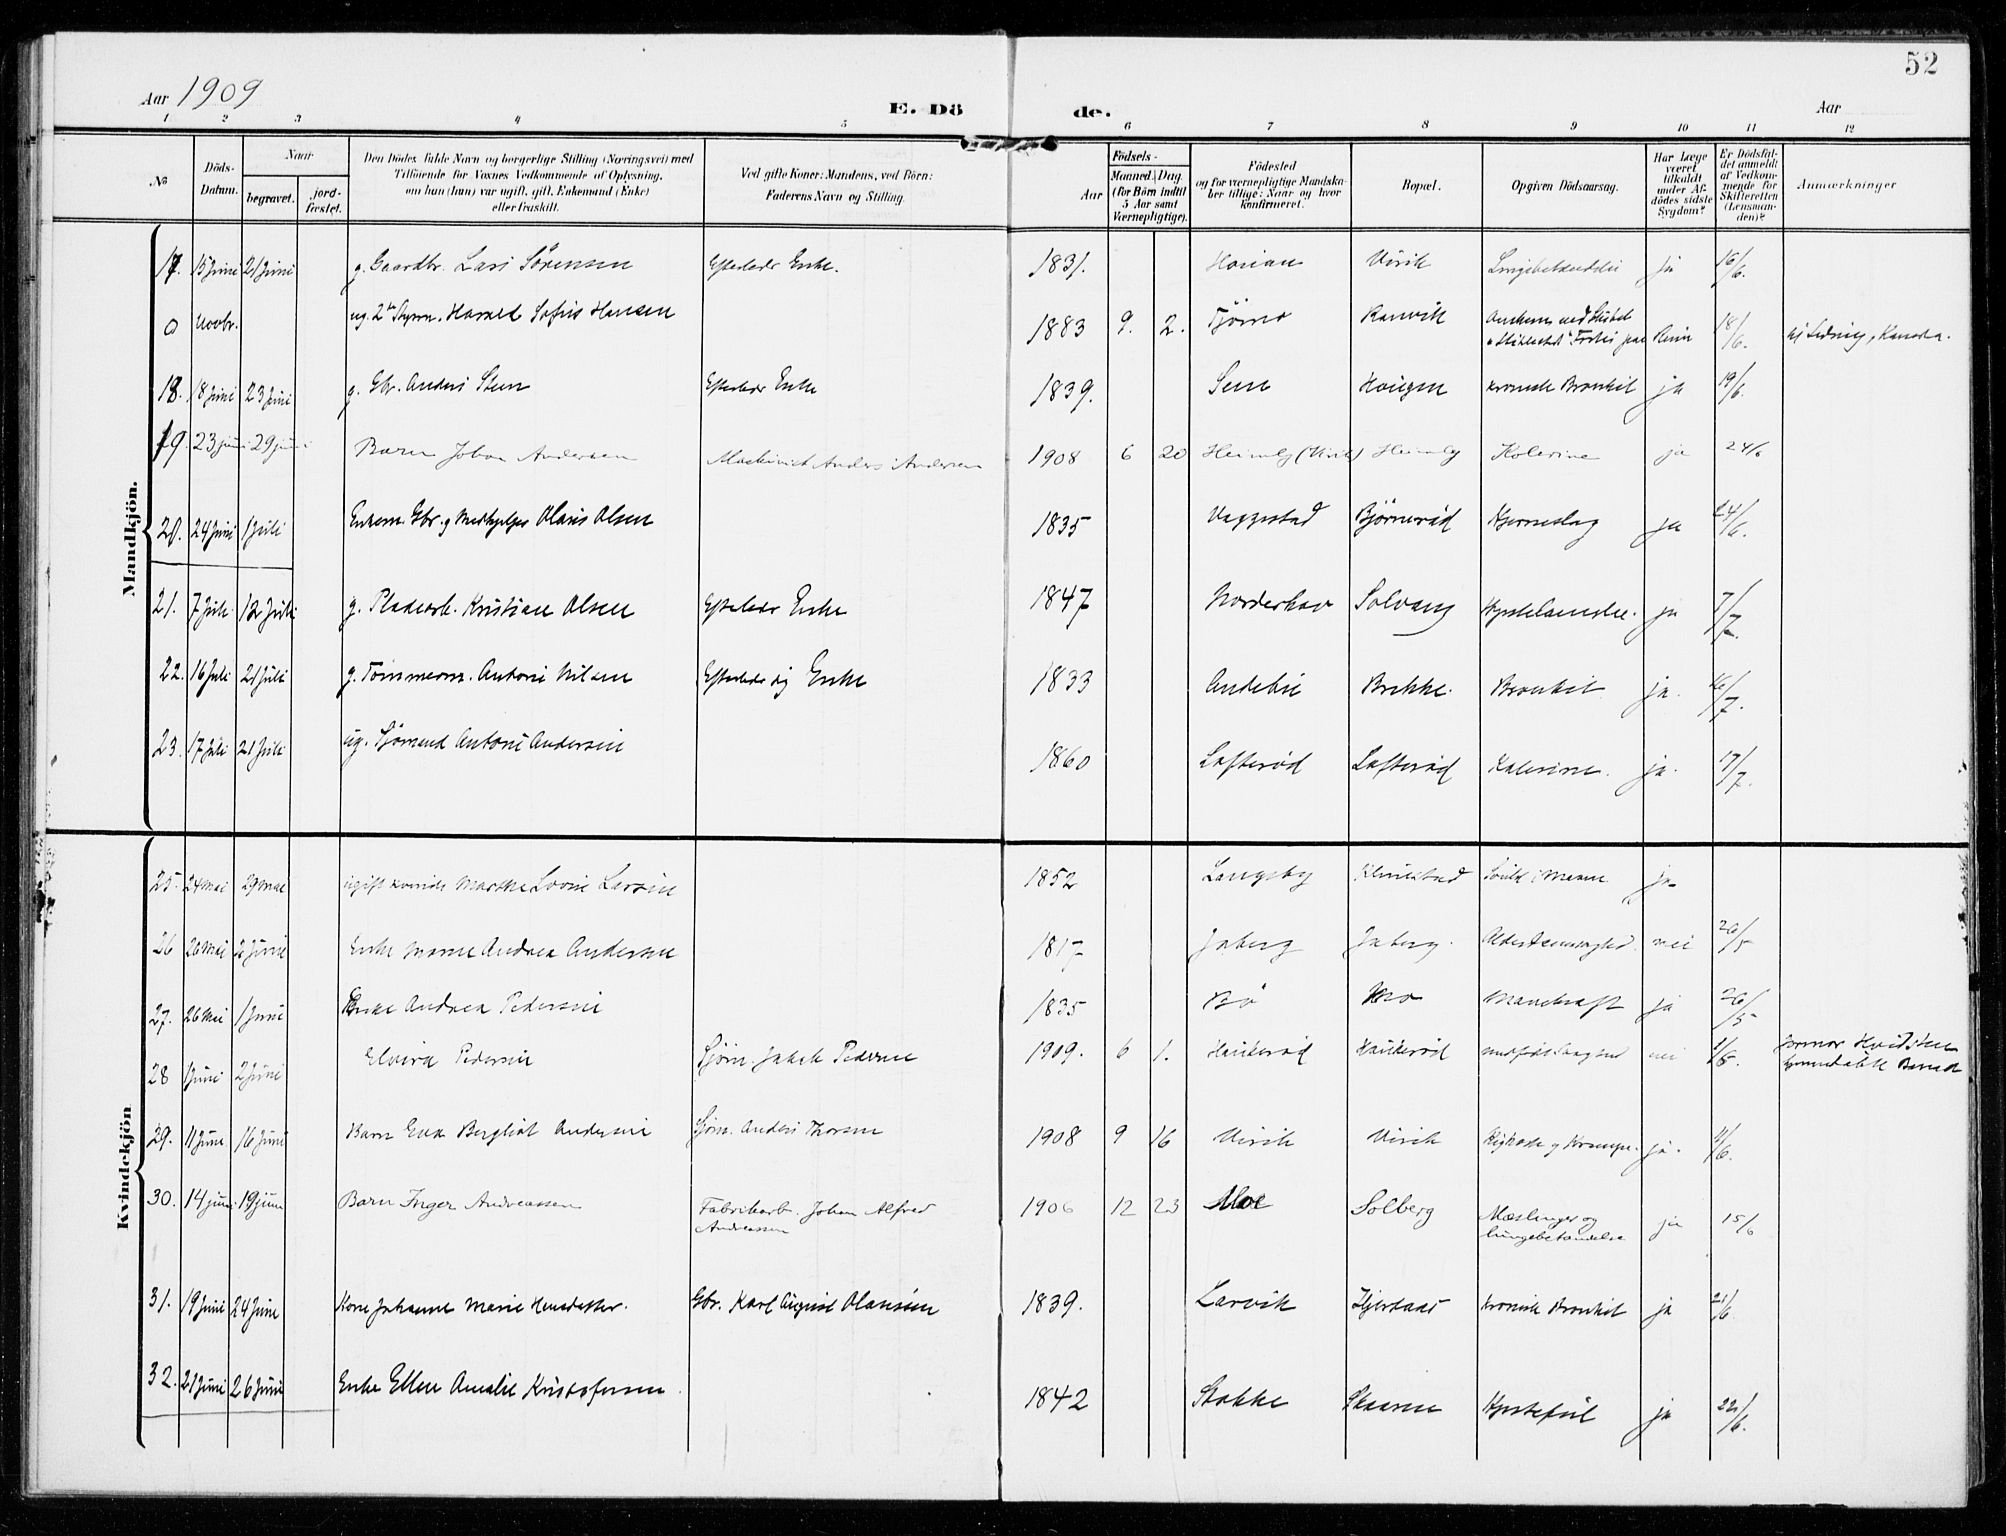 52
Aar 1909
E. Dö de.
Aar
1 2 3 4 5 6 7 8 9 10 11 12
No
Döds-Datum.
Naar
begravet.
jord-fæstet.
Den Dödes fulde Navn og borgerlige Stilling (Næringsvei) med
Tilföiende for Voxnes Vedkommende af Oplysning,
om han (hun) var ugift, gift, Enkemand (Enke)
eller fraskilt.
Ved gifte Koner: Mandens, ved Börn:
Faderens Navn og Stilling.
Födsels-
Aar
Maaned. Dag.
(for Börn indtil
5 Aar samt
Værnepligtige).
Födested
og for værnepligtige Mandska-
ber tillige: Naar og hvor
konfirmeret.
Bopæl.
Opgiven Dödsaarsag.
Har Læge
været
tilkaldt
under Af-
dödes sidste
Sygdom?
Er Dödsfal-
det anmeldt
af Vedkom-
mende for
Skifteretten
(Lensman-
den)?
Anmærkninger
Mandkjön.
17. 15 Juni 21 Juni g. Gaardbr. Lars Sörensen Efterlader Enke. 1831. Virik ja 16/6.
0 Novbr. ug. 2den Styrm. Harald Sofus Hansen 1883 9. 2. Tjömö Ranvik 18/6.
18. 18 Juni 23 Juni g. Gbr. Anders Steen Efterlader Enke 1839. Sem Haugen kronisk Bronkit ja 19/6.
19. 23 juni 29 juni Barn Johan Andersen Maskinist Anders Andersen 1908 6 20 Heimly (Virik) Heimly Kolerine ja 24/6
20. 24 Juni 1 Juli Enkem. Gbr. g Medhjelper Olaus Olsen 1835 Vaggestad Björneröd Hjerneslag ja 24/6.
21. 7 Juli 12 Juli g. Pladearb. Kristian Olsen Efterlader Enke 1847 Norderhov Solvang ja 7/7.
22. 16 Juli 21 Juli g. Tömmerm. Anton Nilsen Efterlader sig Enke 1833 Andebu Brekke. Bronkit ja. 16/7.
23. 17 Juli 21 Juli ug. Sjömand Anton Andersen 1860 Lofteröd Lofteröd Kolerine. ja. 17/7.
Kvindekjön
25. 24 Mai 29 Mai ugift kvinde Marthe Lovise Larsen 1852 Langeby ja
26 26 Mai 2 Juni Enke Maren Andrea Andersen 1817 Jaberg Jaberg. nei 26/5
27. 26 Mai 1 Juni Enke Andrea Pedersen 1835 Bö Mo Mavekræft ja 26/5
28 1 Juni 2 Juni Elvira Pedersen Sjöm. Jakob Pedersen 1909. 6 1. Haukeröd Haukeröd medfödt Svaghed nei hjemmedöbte Barnet
29. 11 Juni 16 Juni Barn Eva Bergliot Andersen Sjöm. Anders Thorsen 1908 9 16 Virik Virik Kighoste g Krampe. ja. 11/6.
30. 14 juni 19 juni Barn Inger Andreassen Fabrikarb. Johan Alfred
Andreassen 1906 12 23 Moe Solberg Mæslinger og
lungebetændelse ja 15/6
31. 19 Juni 24 Juni Kone Johanne Marie Hansdatter. Gbr. Karl August Olaussen 1839. Larvik kronisk Bronkit ja 21/6.
32. 21 Juni 26 Juni Enke Ellen Amalie Kristofersen 1842 Stokke Skaaren Hjertefeil ja 22/6.